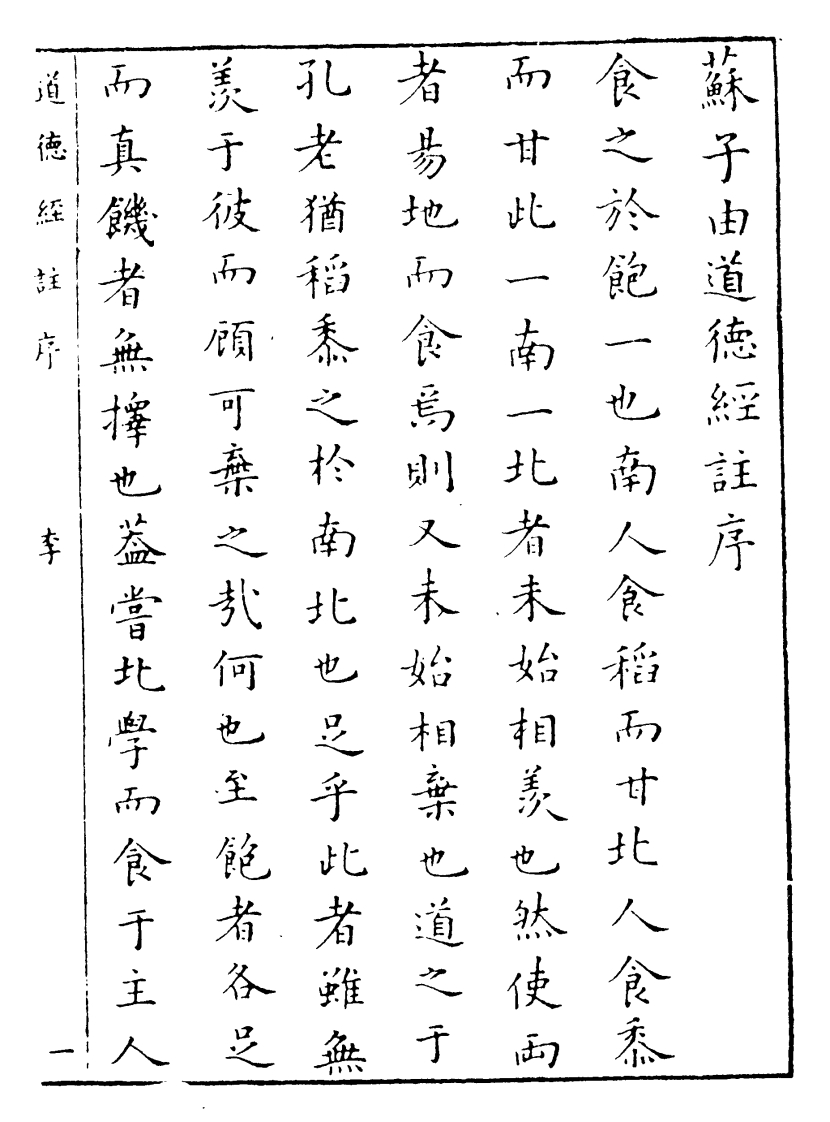 蘇子由道德經註序
食之於飽一也南人食稻而甘北人食黍
而甘此一南一北者未始相羨也然使兩
者易地而食焉則又未始相棄也道之于
孔老猶稻黍之於南北也足乎此者雖無
羨于彼而顧可棄之哉何也至飽者各足
而真饑者無擇也葢嘗北學而食于主人
道德經註序 李 一